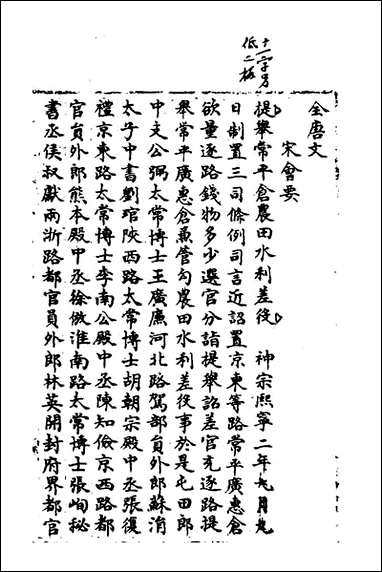 全唐文
宋會要
提舉常平倉農田水利差役　神宗熙寧二年九月九
日制置三司條例司言近詔置京東等路常平廣惠倉
欲量逐路錢物多少選官分詣提舉詔差官充逐路提
舉常平廣惠倉兼管勾農田水利差役事於是屯田郎
中文公弼太常博士王廣廉河北路駕部員外郎蘇涓
太子中書劉琯陝西路太常博士胡朝宗殿中丞張復
禮京東路太常博士李南公殿中丞陳知儉京西路都
官員外郎熊本殿中丞徐倣淮南路太常博士張峋秘
書丞侯叔獻兩浙路都官員外郎林英開封府界都官